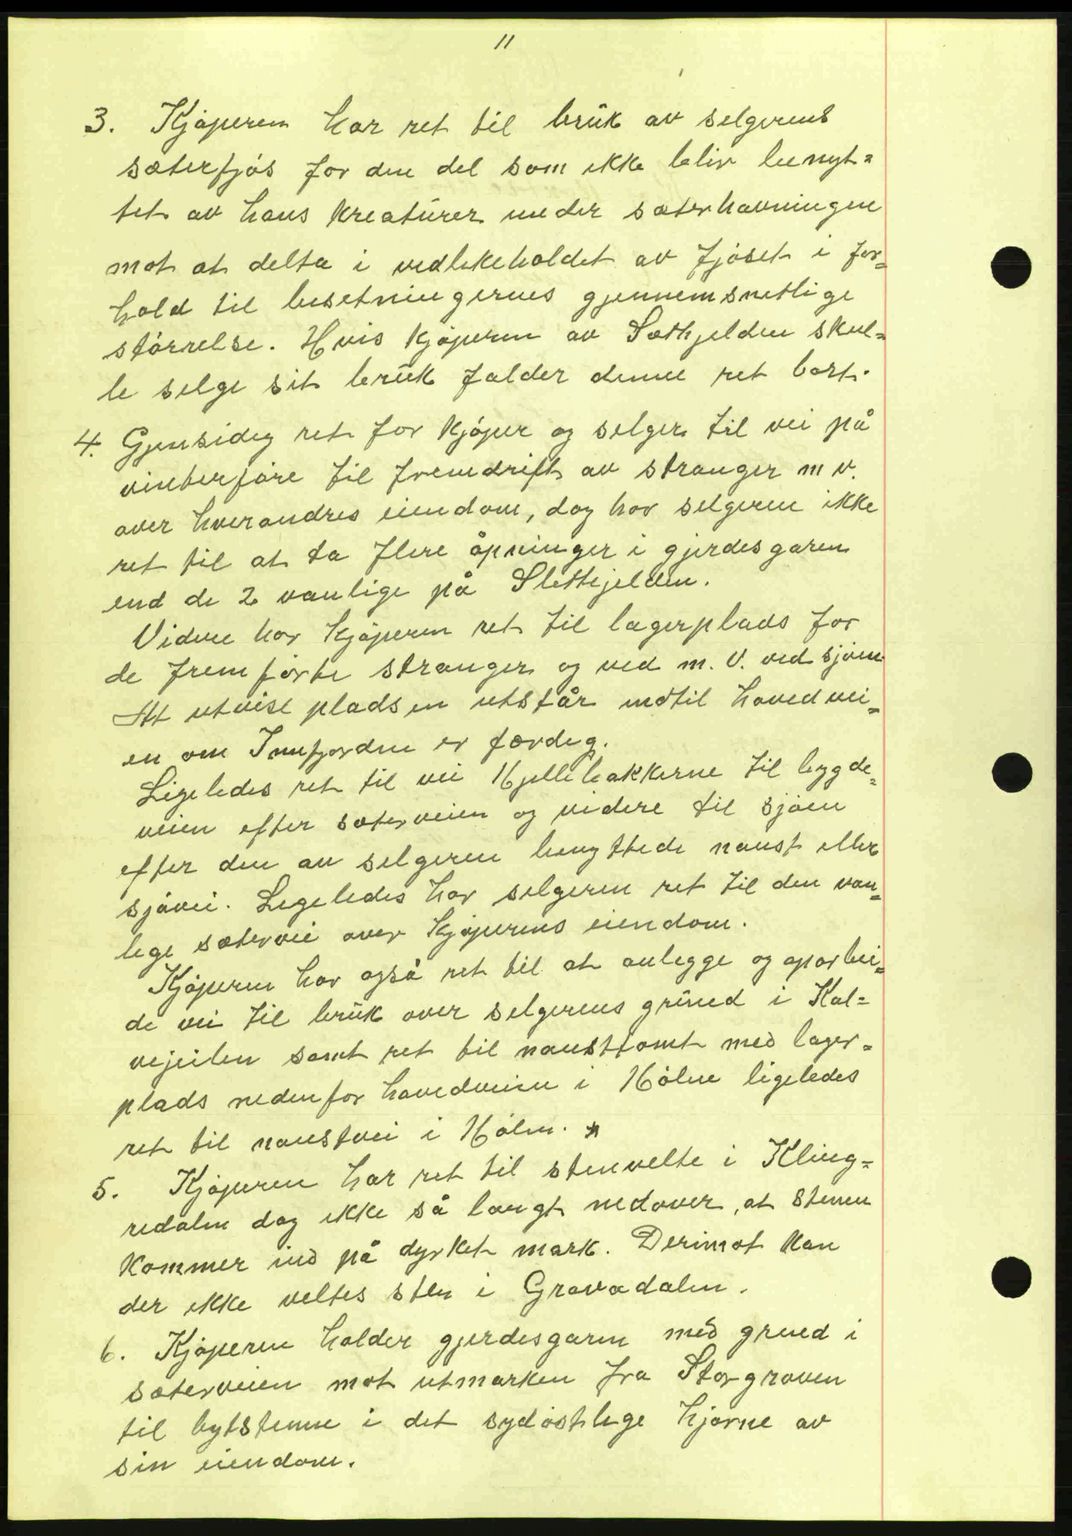 11
3. Kjøperen har ret til brŭk av selgerens
sæterfjøs for den del som ikke bliv benyt=
tet av hans kreatŭrer under sæterhavningen
mot at delta i vedlikeholdet av fjøset i for=
hold til besetningernes gjennemsnetlige
størrelse. Hvis kjøperen av Sethjelden skul=
le selge sit brŭk falder denne ret bort.
4. Gjensidig ret for kjøper og selger til vei på
vinterføre til fremdrift av stranger m v.
over hverandres eiendom, dog har selgeren ikke
ret til at ta flere åpninger i gjerdesgaren
end de 2 vanlige på Slethjelden.
Videre har kjøperen ret til lagerplads for
de fremførte stranger og ved m. v. ved sjøen
At utvise pladsen utstår indtil hovedvei=
en om Innfjorden er færdig.
Ligeledes ret til vei Hjellebakkerne til bygde=
veien efter sæterveien og videre til sjøen
efter den av selgeren benyttede naust eller
sjøvei. Ligeledes har selgeren ret til den van=
lege sætervei over kjøperens eiendom.
Kjøperen har også ret til at anlegge og oparbei=
de vei til brŭk over selgerens grŭnd i Kal=
vejeilen samt ret til nausttomt med lager=
plads nedenfor hovedveien i Hølne ligeledes
ret til naustvei i Hølen. *
5. Kjøperen har ret til stenvelte i Kling=
redalen dog ikke så langt nedover, at stenen
kommer ind på dyrket mark. Derimot kan
der ikke veltes sten i Gravadalen.
6. Kjøperen holder gjerdesgaren med grind i
sæterveien mot utmarken fra Storgraven
til bytstenne i det sydøstlege hjørne av
sin eiendom.